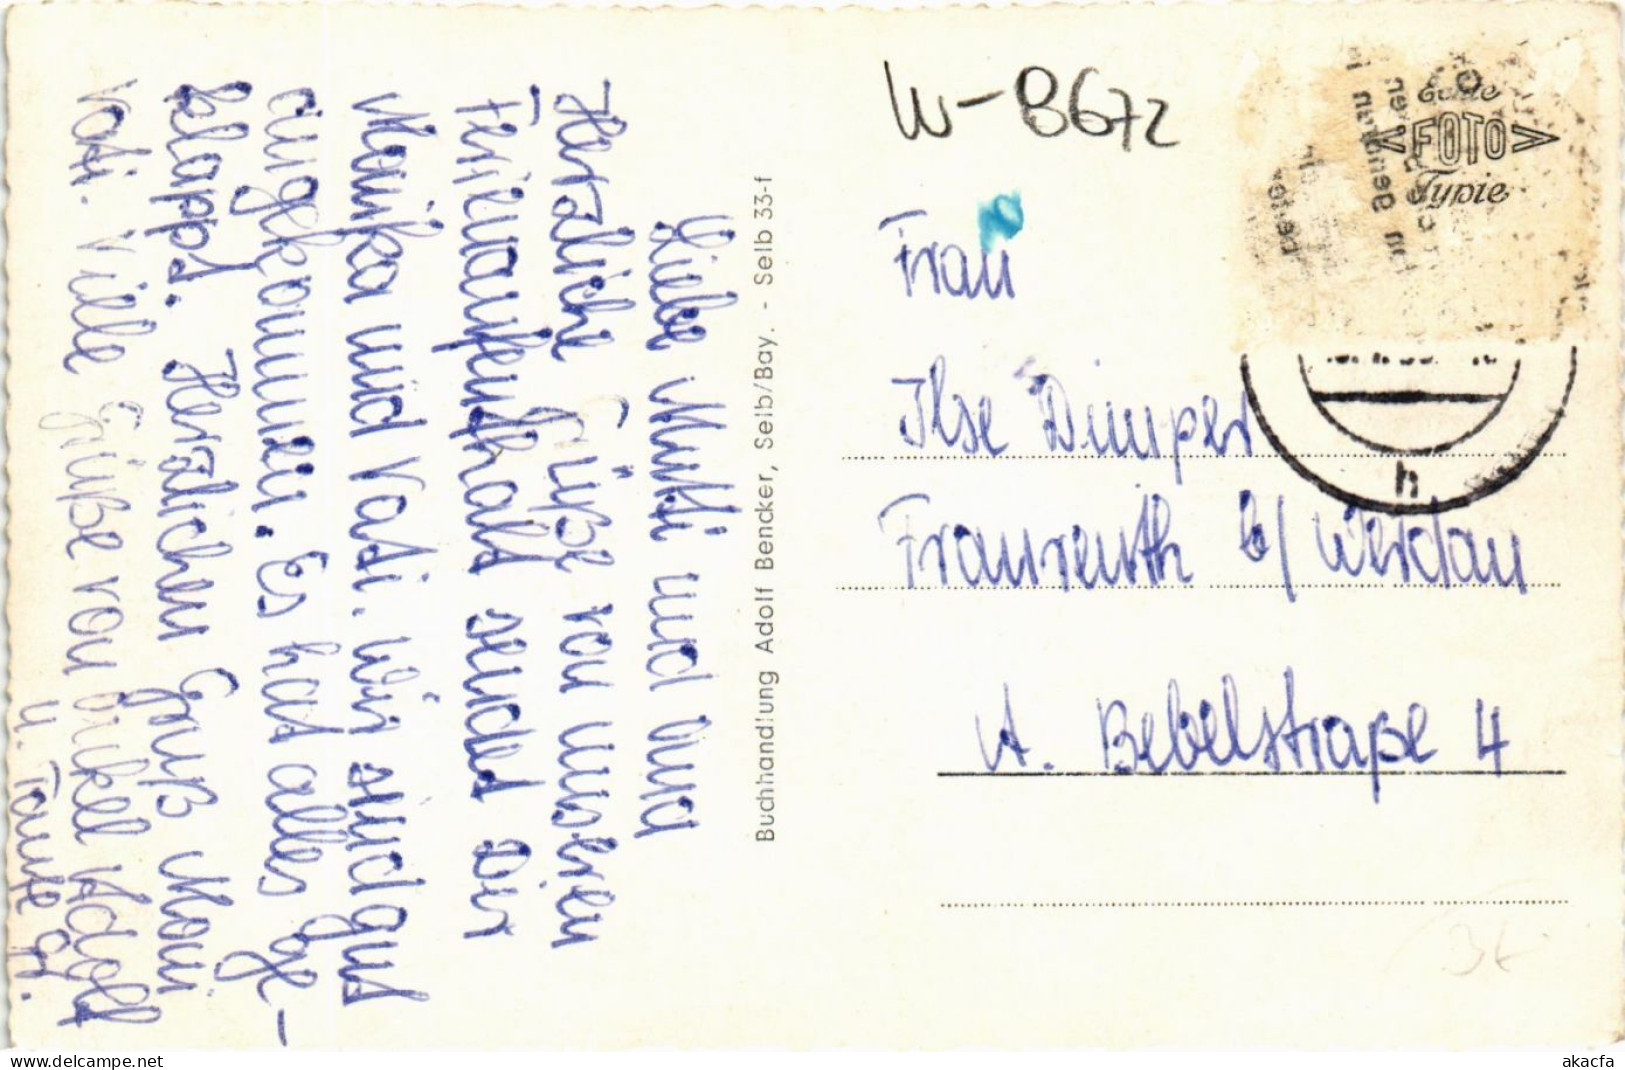 Liebe Mutti und Oma
Herzliche Grüße von unseren
Ferienaufenthalt sendet Dir
Monika und Vati. Wir sind gut
angekommen. Es hat alles ge-
klappt. Herzlichen Gruß Moni
Vati. Viele Grüße von Onkel Adolf
u. Tante
Buchhandlung Adolf Bencker, Selb/Bay. - Selb 33-f
W-B672
Echte
<FOTO>
Typie
h
Frau
Ilse Dimper
Fraureuth b/ Werdau
A. Bebelstraße 4
akacfa